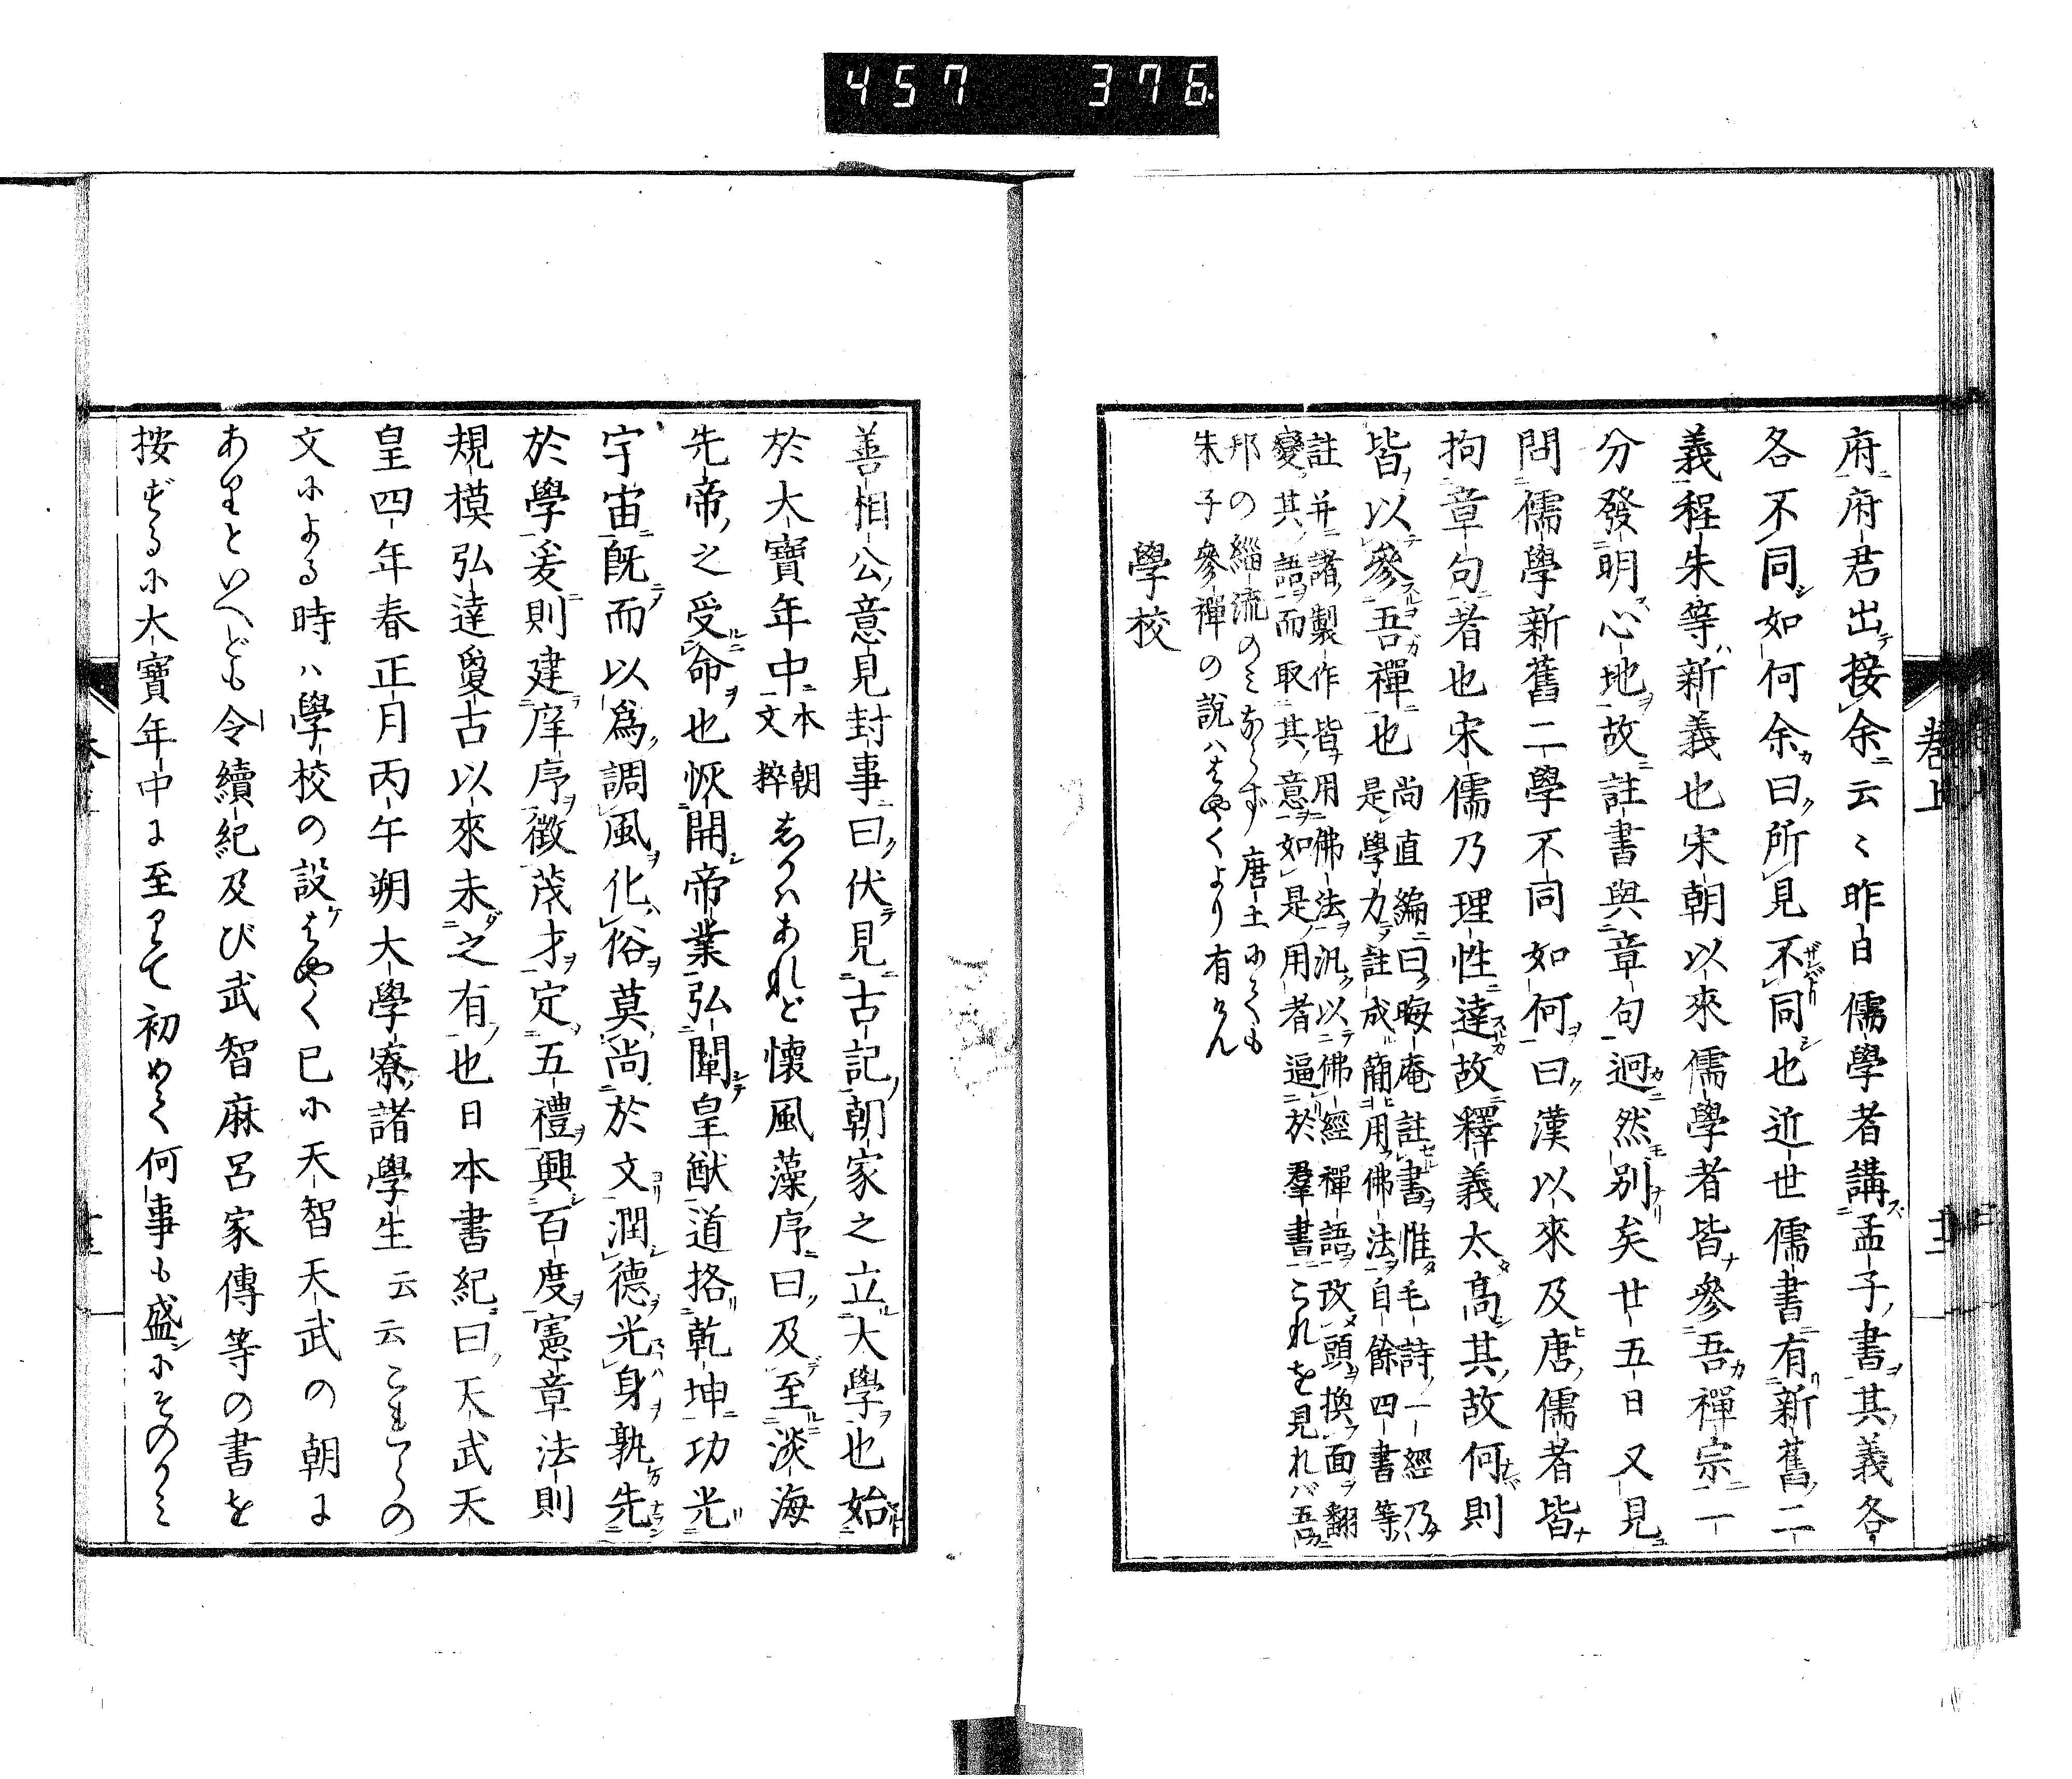 457 376
卷上
府府君出接余云〻昨日儒學者講孟子書其義各
各不同如何余曰所見不同也近世儒書有新舊二
義程朱等新義也宋朝以來儒學者皆參吾禪宗一
分發明心地故註書與章句迥然別矣廿五日又見
問儒學新舊二學不同如何曰漢以來及唐儒者皆
拘章句者也宋儒乃理性達故釋義太高其故何則
皆以參吾禪也
尚直編曰晦庵註書惟毛詩一經乃
是學力註成簡用佛法自餘四書等
註并諸製作皆用佛法汎以佛經禪語改頭換面翻
變其語而取其意如是用者逼於羣書これを見れバ吾
邦の緇流のみならず唐土にても
朱子參禪の說ハはやくより有けん
學校
善相公意見封事曰伏見古記朝家之立大學也始
於大寶年中本朝文粹しかハあれど懷風藻序曰及至淡海
先帝之受命也恢開帝業弘闡皇猷道挌乾坤功光
宇宙既而以爲調風化俗莫尚於文潤德光身孰先
於學爰則建庠序徵茂才定五禮興百度憲章法則
規模弘達夐古以來未之有也日本書紀曰天武天
皇四年春正月丙午朔大學寮諸學生云云これらの
文による時ハ學校の設はやく已に天智天武の朝に
ありといへども令續紀及び武智麻呂家傳等の書を
按ずるに大寶年中に至りて初めて何事も盛にそのかミ